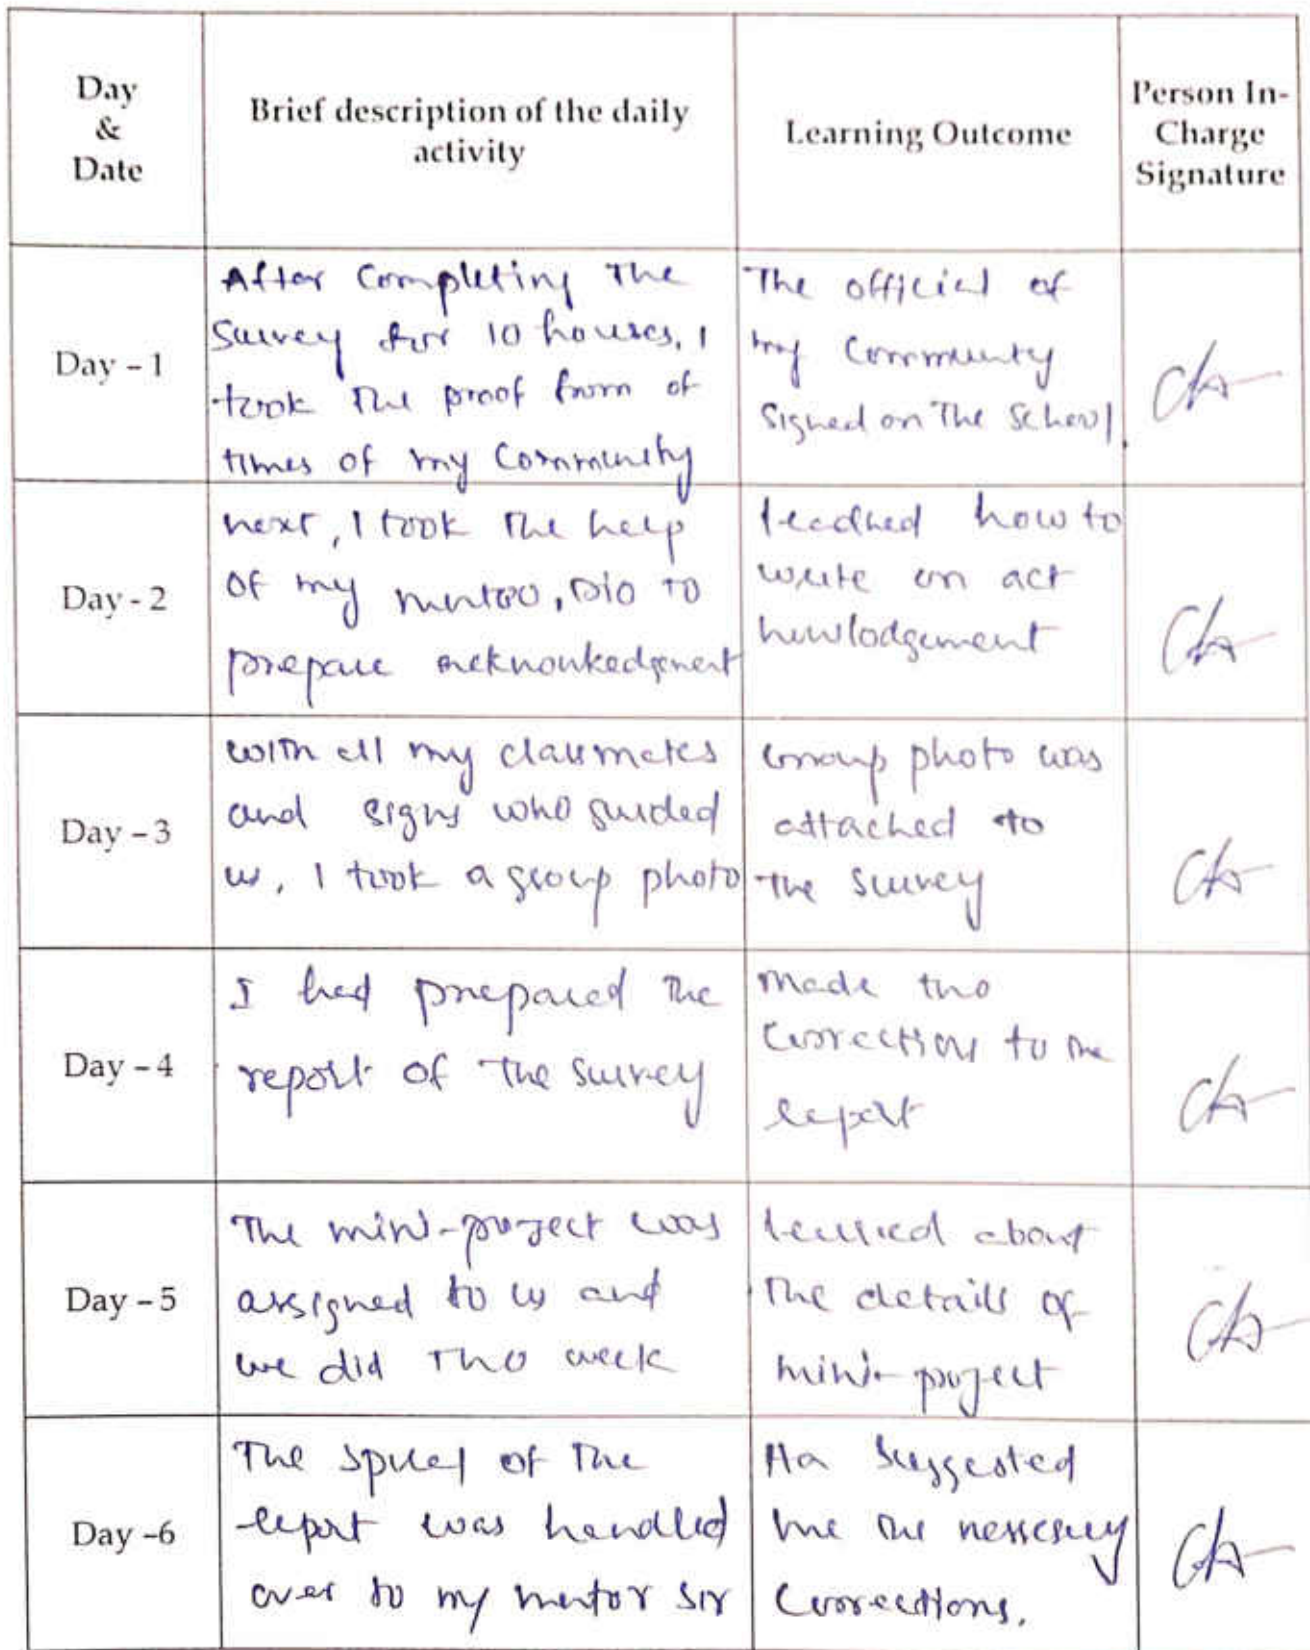 Day
&
Date
Brief description of the daily
activity
Learning Outcome
Person In-
Charge
Signature
Day – 1
After Completing The
Survey for 10 houses, I
took The proof from of
times of my Community
The official of
my Community
Signed on The School.
Day - 2
next, I took The help
of my to
prepare
how to
write an act
Day – 3
with all my classmates
and signs who guided
us, I took a group photo
Group photo was
attached to
The survey
Day – 4
I had prepared The
report of The survey
Made two
corrections to the
report
Day – 5
The mini-project was
assigned to us and
we did week
about
The details of
mini-project
Day –6
The of The
report was handled
over to my mentor sir
suggested
me the
Corrections.